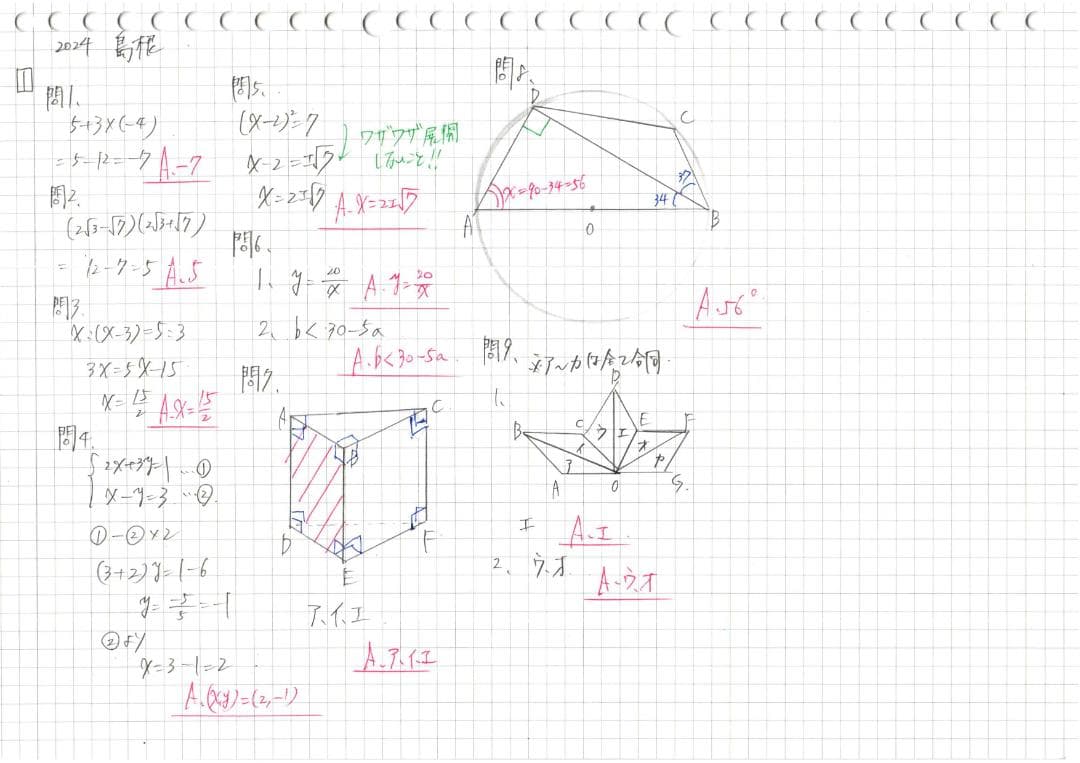 2024 島根
1
問1、
5+3×(-4)
=5-12=-7 A.-7
問2、
(2√3-√7)(2√3+√7)
= 12-7=5 A.5
問3、
x:(x-3)=5:3
3x=5x-15
x=15/2 A.x=15/2
問4、
2x+3y=1 …①
x-y=3 …②
①-②×2
(3+2)y=1-6
y=-5/5=-1
②より
x=3-1=2
A.(x,y)=(2,-1)
問5、
(x-2)²=7
ワザワザ展開
しないこと!!
x-2=±√7
x=2±√7 A.x=2±√7
問6、
1、y=20/x A.y=20/x
2、b<30-5a
A.b<30-5a
問7、
A
C
B
D
F
E
ア、イ、エ
A.ア、イ、エ
問8、
D
C
x=90-34=56
37
34
A
O
B
A.56°
問9、※ア〜カは全て合同
1、
D
B
C
E
F
ウ
エ
イ
オ
ア
カ
A
O
G
エ
A.エ
2、ウ、オ
A.ウ、オ